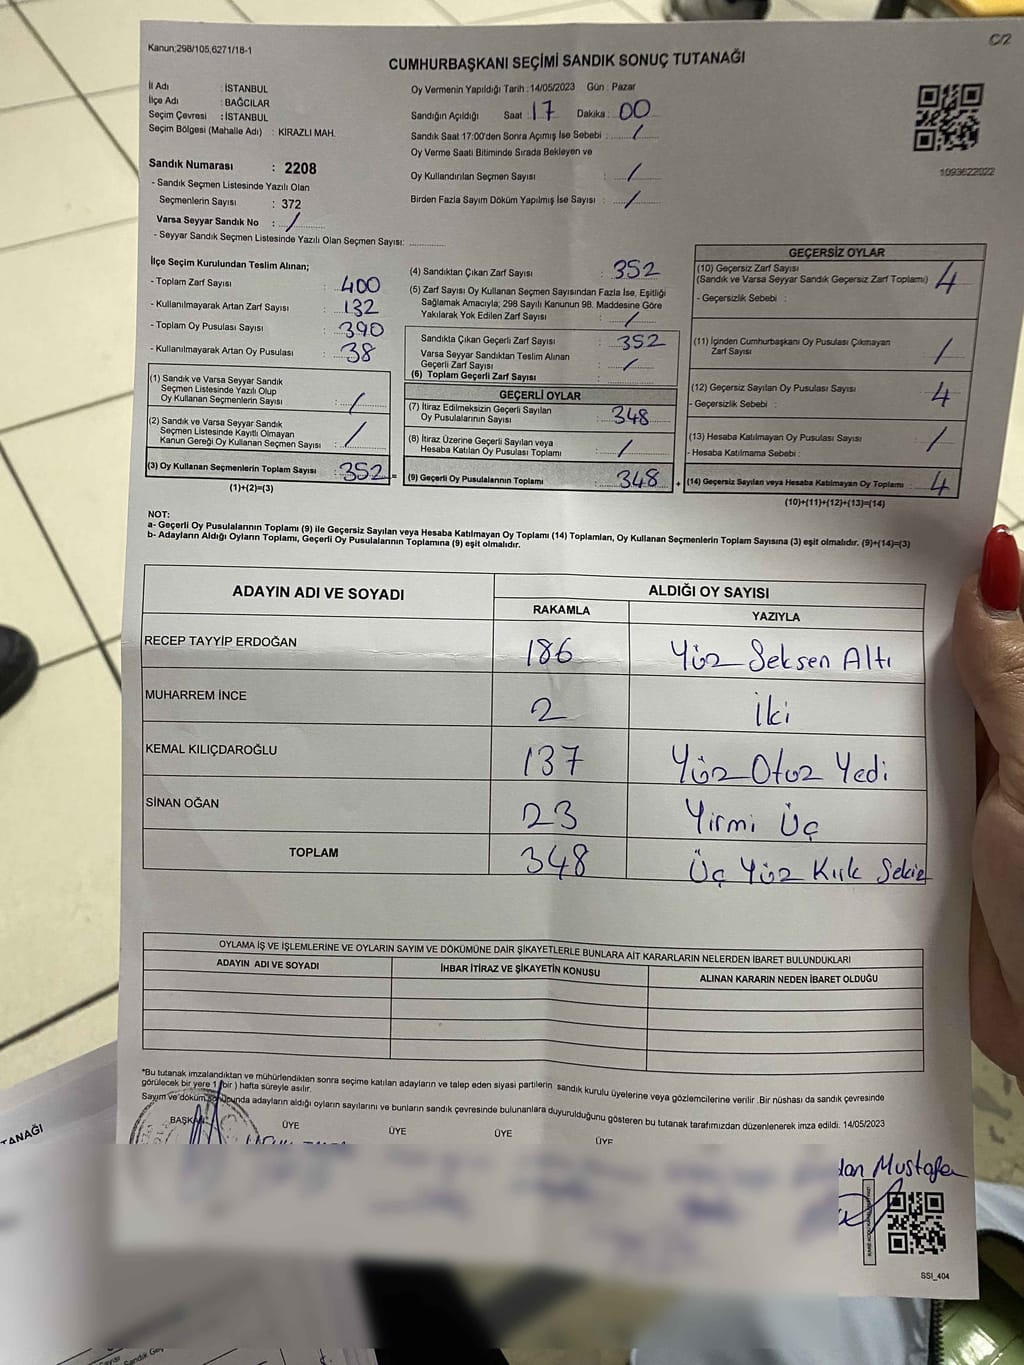 Kanun;298/105,6271/18-1
C/2
CUMHURBAŞKANI SEÇİMİ SANDIK SONUÇ TUTANAĞI
İl Adı : İSTANBUL
İlçe Adı : BAĞCILAR
Seçim Çevresi : İSTANBUL
Seçim Bölgesi (Mahalle Adı) : KİRAZLI MAH.
Sandık Numarası : 2208
- Sandık Seçmen Listesinde Yazılı Olan
Seçmenlerin Sayısı : 372
Varsa Seyyar Sandık No : /
- Seyyar Sandık Seçmen Listesinde Yazılı Olan Seçmen Sayısı:
Oy Vermenin Yapıldığı Tarih : 14/05/2023 Gün : Pazar
Sandığın Açıldığı Saat : 17 Dakika : 00
Sandık Saat 17:00'den Sonra Açımış İse Sebebi : /
Oy Verme Saati Bitiminde Sırada Bekleyen ve
Oy Kullandırılan Seçmen Sayısı : /
Birden Fazla Sayım Döküm Yapılmış İse Sayısı : /
1093622022
İlçe Seçim Kurulundan Teslim Alınan;
- Toplam Zarf Sayısı : 400
- Kullanılmayarak Artan Zarf Sayısı : 132
- Toplam Oy Pusulası Sayısı : 390
- Kullanılmayarak Artan Oy Pusulası : 38
(1) Sandık ve Varsa Seyyar Sandık
Seçmen Listesinde Yazılı Olup
Oy Kullanan Seçmenlerin Sayısı : /
(2) Sandık ve Varsa Seyyar Sandık
Seçmen Listesinde Kayıtlı Olmayan
Kanun Gereği Oy Kullanan Seçmen Sayısı : /
(3) Oy Kullanan Seçmenlerin Toplam Sayısı : 352 =
(1)+(2)=(3)
(4) Sandıktan Çıkan Zarf Sayısı : 352
(5) Zarf Sayısı Oy Kullanan Seçmen Sayısından Fazla İse, Eşitliği
Sağlamak Amacıyla; 298 Sayılı Kanunun 98. Maddesine Göre
Yakılarak Yok Edilen Zarf Sayısı : /
Sandıkta Çıkan Geçerli Zarf Sayısı : 352
Varsa Seyyar Sandıktan Teslim Alınan
Geçerli Zarf Sayısı : /
(6) Toplam Geçerli Zarf Sayısı :
GEÇERLİ OYLAR
(7) İtiraz Edilmeksizin Geçerli Sayılan
Oy Pusulalarının Sayısı : 348
(8) İtiraz Üzerine Geçerli Sayılan veya
Hesaba Katılan Oy Pusulası Toplamı : /
(9) Geçerli Oy Pusulalarının Toplamı : 348 +
GEÇERSİZ OYLAR
(10) Geçersiz Zarf Sayısı
(Sandık ve Varsa Seyyar Sandık Geçersiz Zarf Toplamı) 4
- Geçersizlik Sebebi :
(11) İçinden Cumhurbaşkanı Oy Pusulası Çıkmayan
Zarf Sayısı /
(12) Geçersiz Sayılan Oy Pusulası Sayısı 4
- Geçersizlik Sebebi :
(13) Hesaba Katılmayan Oy Pusulası Sayısı /
- Hesaba Katılmama Sebebi :
(14) Geçersiz Sayılan veya Hesaba Katılmayan Oy Toplamı : 4
(10)+(11)+(12)+(13)=(14)
NOT:
a- Geçerli Oy Pusulalarının Toplamı (9) ile Geçersiz Sayılan veya Hesaba Katılmayan Oy Toplamı (14) Toplamları, Oy Kullanan Seçmenlerin Toplam Sayısına (3) eşit olmalıdır. (9)+(14)=(3)
b- Adayların Aldığı Oyların Toplamı, Geçerli Oy Pusulalarının Toplamına (9) eşit olmalıdır.
ADAYIN ADI VE SOYADI ALDIĞI OY SAYISI
RAKAMLA YAZIYLA
RECEP TAYYİP ERDOĞAN 186 Yüz Seksen Altı
MUHARREM İNCE 2 İki
KEMAL KILIÇDAROĞLU 137 Yüz Otuz Yedi
SİNAN OĞAN 23 Yirmi Üç
TOPLAM 348 Üç Yüz Kırk Sekiz
OYLAMA İŞ VE İŞLEMLERİNE VE OYLARIN SAYIM VE DÖKÜMÜNE DAİR ŞİKAYETLERLE BUNLARA AİT KARARLARIN NELERDEN İBARET BULUNDUKLARI
ADAYIN ADI VE SOYADI İHBAR İTİRAZ VE ŞİKAYETİN KONUSU ALINAN KARARIN NEDEN İBARET OLDUĞU
*Bu tutanak imzalandıktan ve mühürlendikten sonra seçime katılan adayların ve talep eden siyasi partilerin sandık kurulu üyelerine veya gözlemcilerine verilir .Bir nüshası da sandık çevresinde
görülecek bir yere 1 (bir ) hafta süreyle asılır.
Sayım ve döküm sonucunda adayların aldığı oyların sayılarını ve bunların sandık çevresinde bulunanlara duyurulduğunu gösteren bu tutanak tarafımızdan düzenlenerek imza edildi. 14/05/2023
BAŞKAN ÜYE ÜYE ÜYE ÜYE
dan Mustafa
SSI_404
TANAĞI